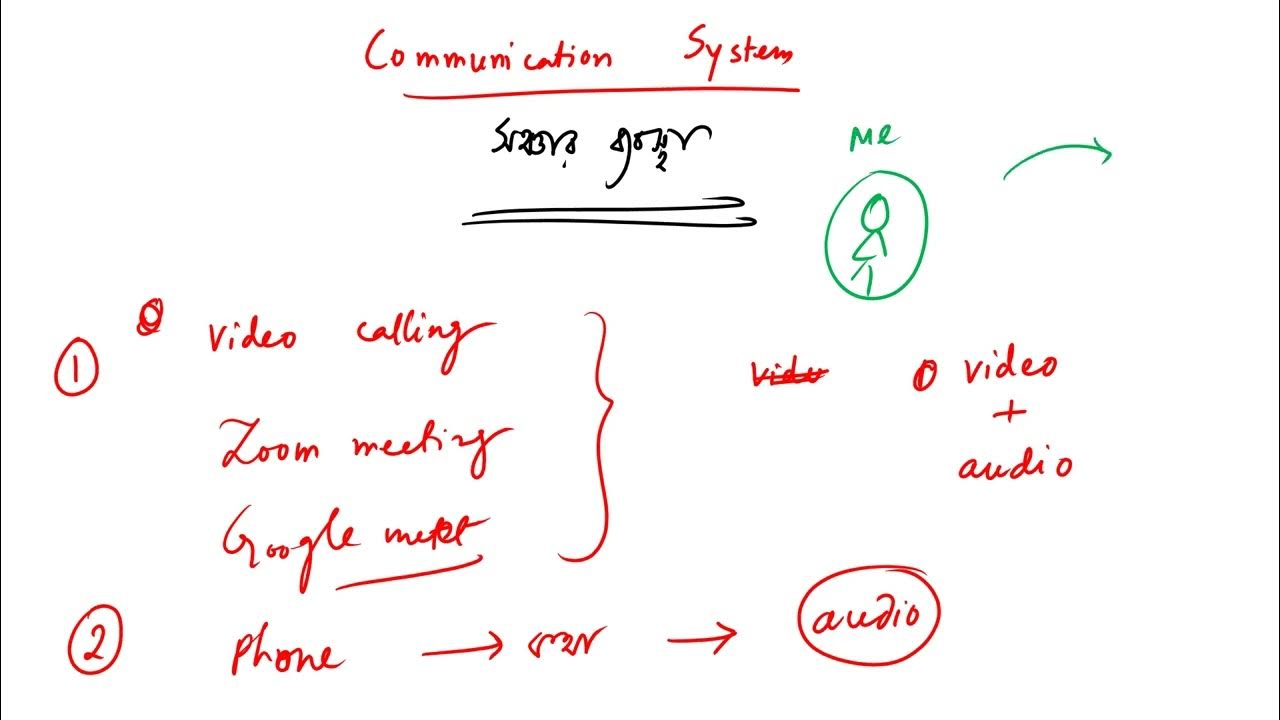 Communication System
সঞ্চার ব্যবস্থা
Me
① video calling
Zoom meeting
Google meet
video
+
audio
② Phone → কথা → audio